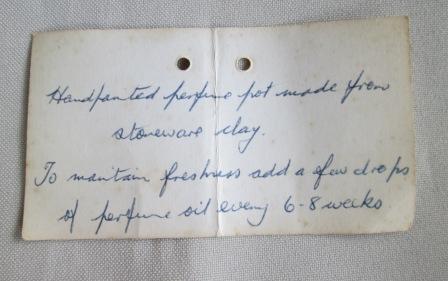 Handpainted perfume pot made from
stoneware clay.
To maintain freshness add a few drops
of perfume oil every 6-8 weeks